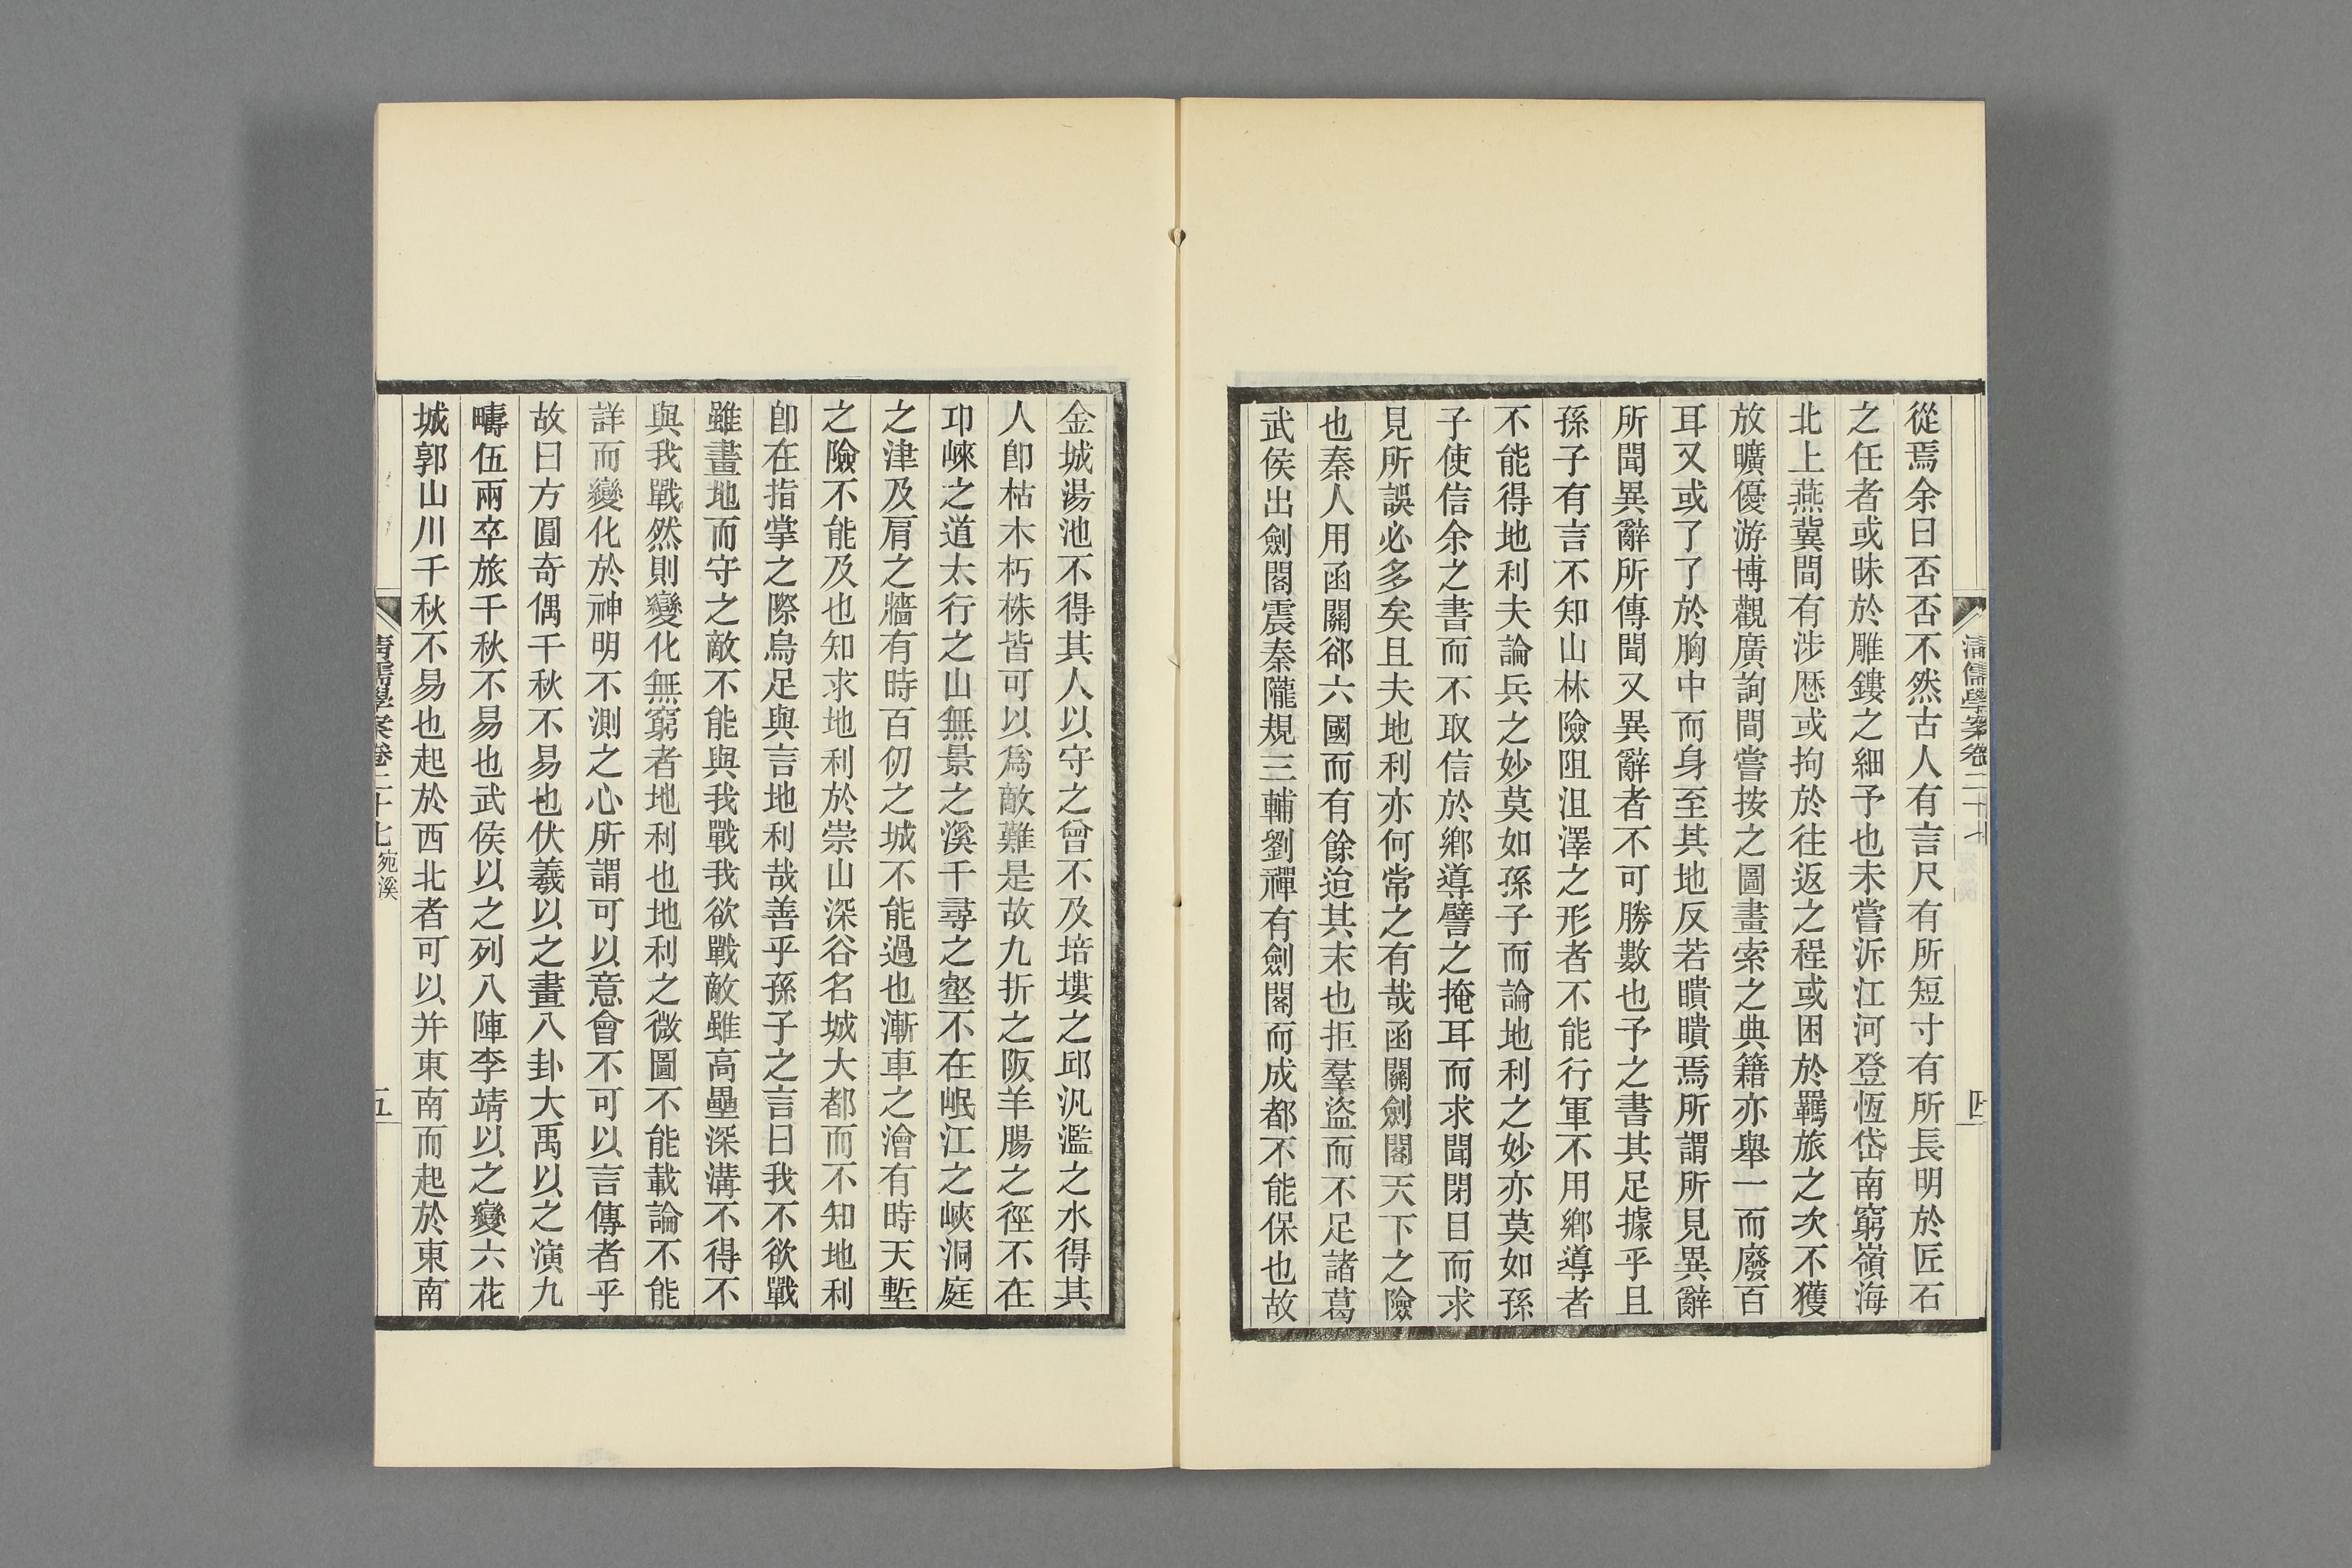 清儒學案卷二十七
四
從焉余曰否否不然古人有言尺有所短寸有所長明於匠石
之任者或昧於雕鏤之細予也未嘗泝江河登恆岱南窮嶺海
北上燕冀間有涉歷或拘於往返之程或困於羈旅之次不獲
放曠優游博觀廣詢間嘗按之圖畫索之典籍亦舉一而廢百
耳又或了了於胸中而身至其地反若瞶瞶焉所謂所見異辭
所聞異辭所傳聞又異辭者不可勝數也予之書其足據乎且
孫子有言不知山林險阻沮澤之形者不能行軍不用鄉導者
不能得地利夫論兵之妙莫如孫子而論地利之妙亦莫如孫
子使信余之書而不取信於鄉導譬之掩耳而求聞閉目而求
見所誤必多矣且夫地利亦何常之有哉函關劍閣天下之險
也秦人用函關卻六國而有餘迨其末也拒羣盜而不足諸葛
武侯出劍閣震秦隴規三輔劉禪有劍閣而成都不能保也故
金城湯池不得其人以守之曾不及培塿之邱汎濫之水得其
人卽枯木朽株皆可以爲敵難是故九折之阪羊腸之徑不在
邛崍之道太行之山無景之溪千尋之壑不在岷江之峽洞庭
之津及肩之牆有時百仞之城不能過也漸車之澮有時天塹
之險不能及也知求地利於崇山深谷名城大都而不知地利
卽在指掌之際烏足與言地利哉善乎孫子之言曰我不欲戰
雖畫地而守之敵不能與我戰我欲戰敵雖高壘深溝不得不
與我戰然則變化無窮者地利也地利之微圖不能載論不能
詳而變化於神明不測之心所謂可以意會不可以言傳者乎
故曰方圓奇偶千秋不易也伏羲以之畫八卦大禹以之演九
疇伍兩卒旅千秋不易也武侯以之列八陣李靖以之變六花
城郭山川千秋不易也起於西北者可以并東南而起於東南
清儒學案卷二十七 宛溪
五